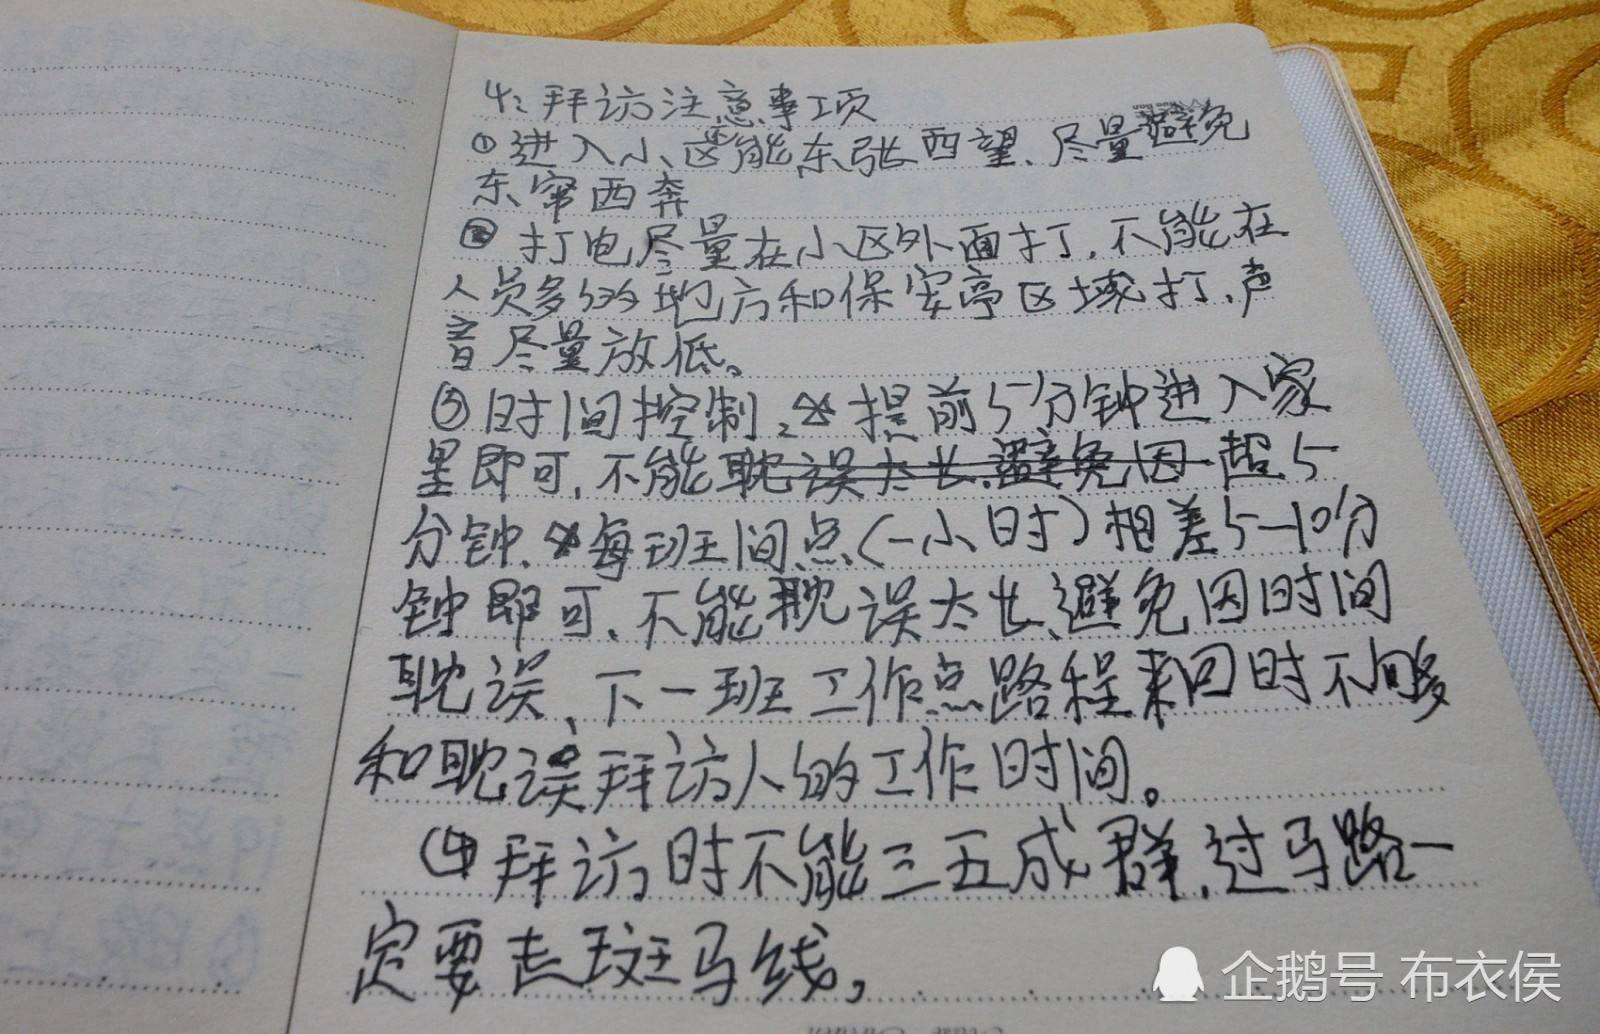 4: 拜访注意事项
① 进入小区能东张西望、尽量避免
东窜西奔
② 打电尽量在小区外面打、不能在
人员多的地方和保安亭区域打、声
音尽量放低。
③ 时间控制、提前5分钟进入家
里即可、不能耽误太长、避免因超5
分钟、每班间点(一小时)相差5-10分
钟即可、不能耽误太长、避免因时间
耽误、下一班工作点路程来回时不够
和耽误拜访人的工作时间。
④ 拜访时不能三五成群、过马路一
定要走斑马线。
企鹅号 布衣侯